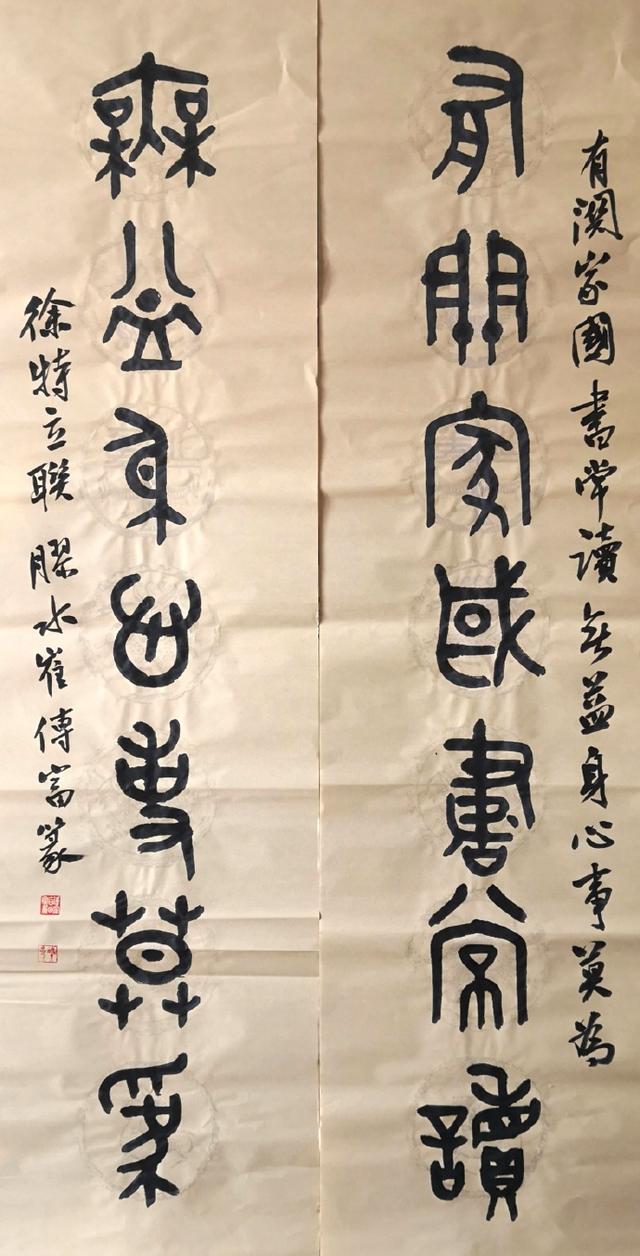 有関家國書常讀无益身心事莫為
有關家國書常讀
無益身心事莫為
徐特立聯 膠水崔傳富篆